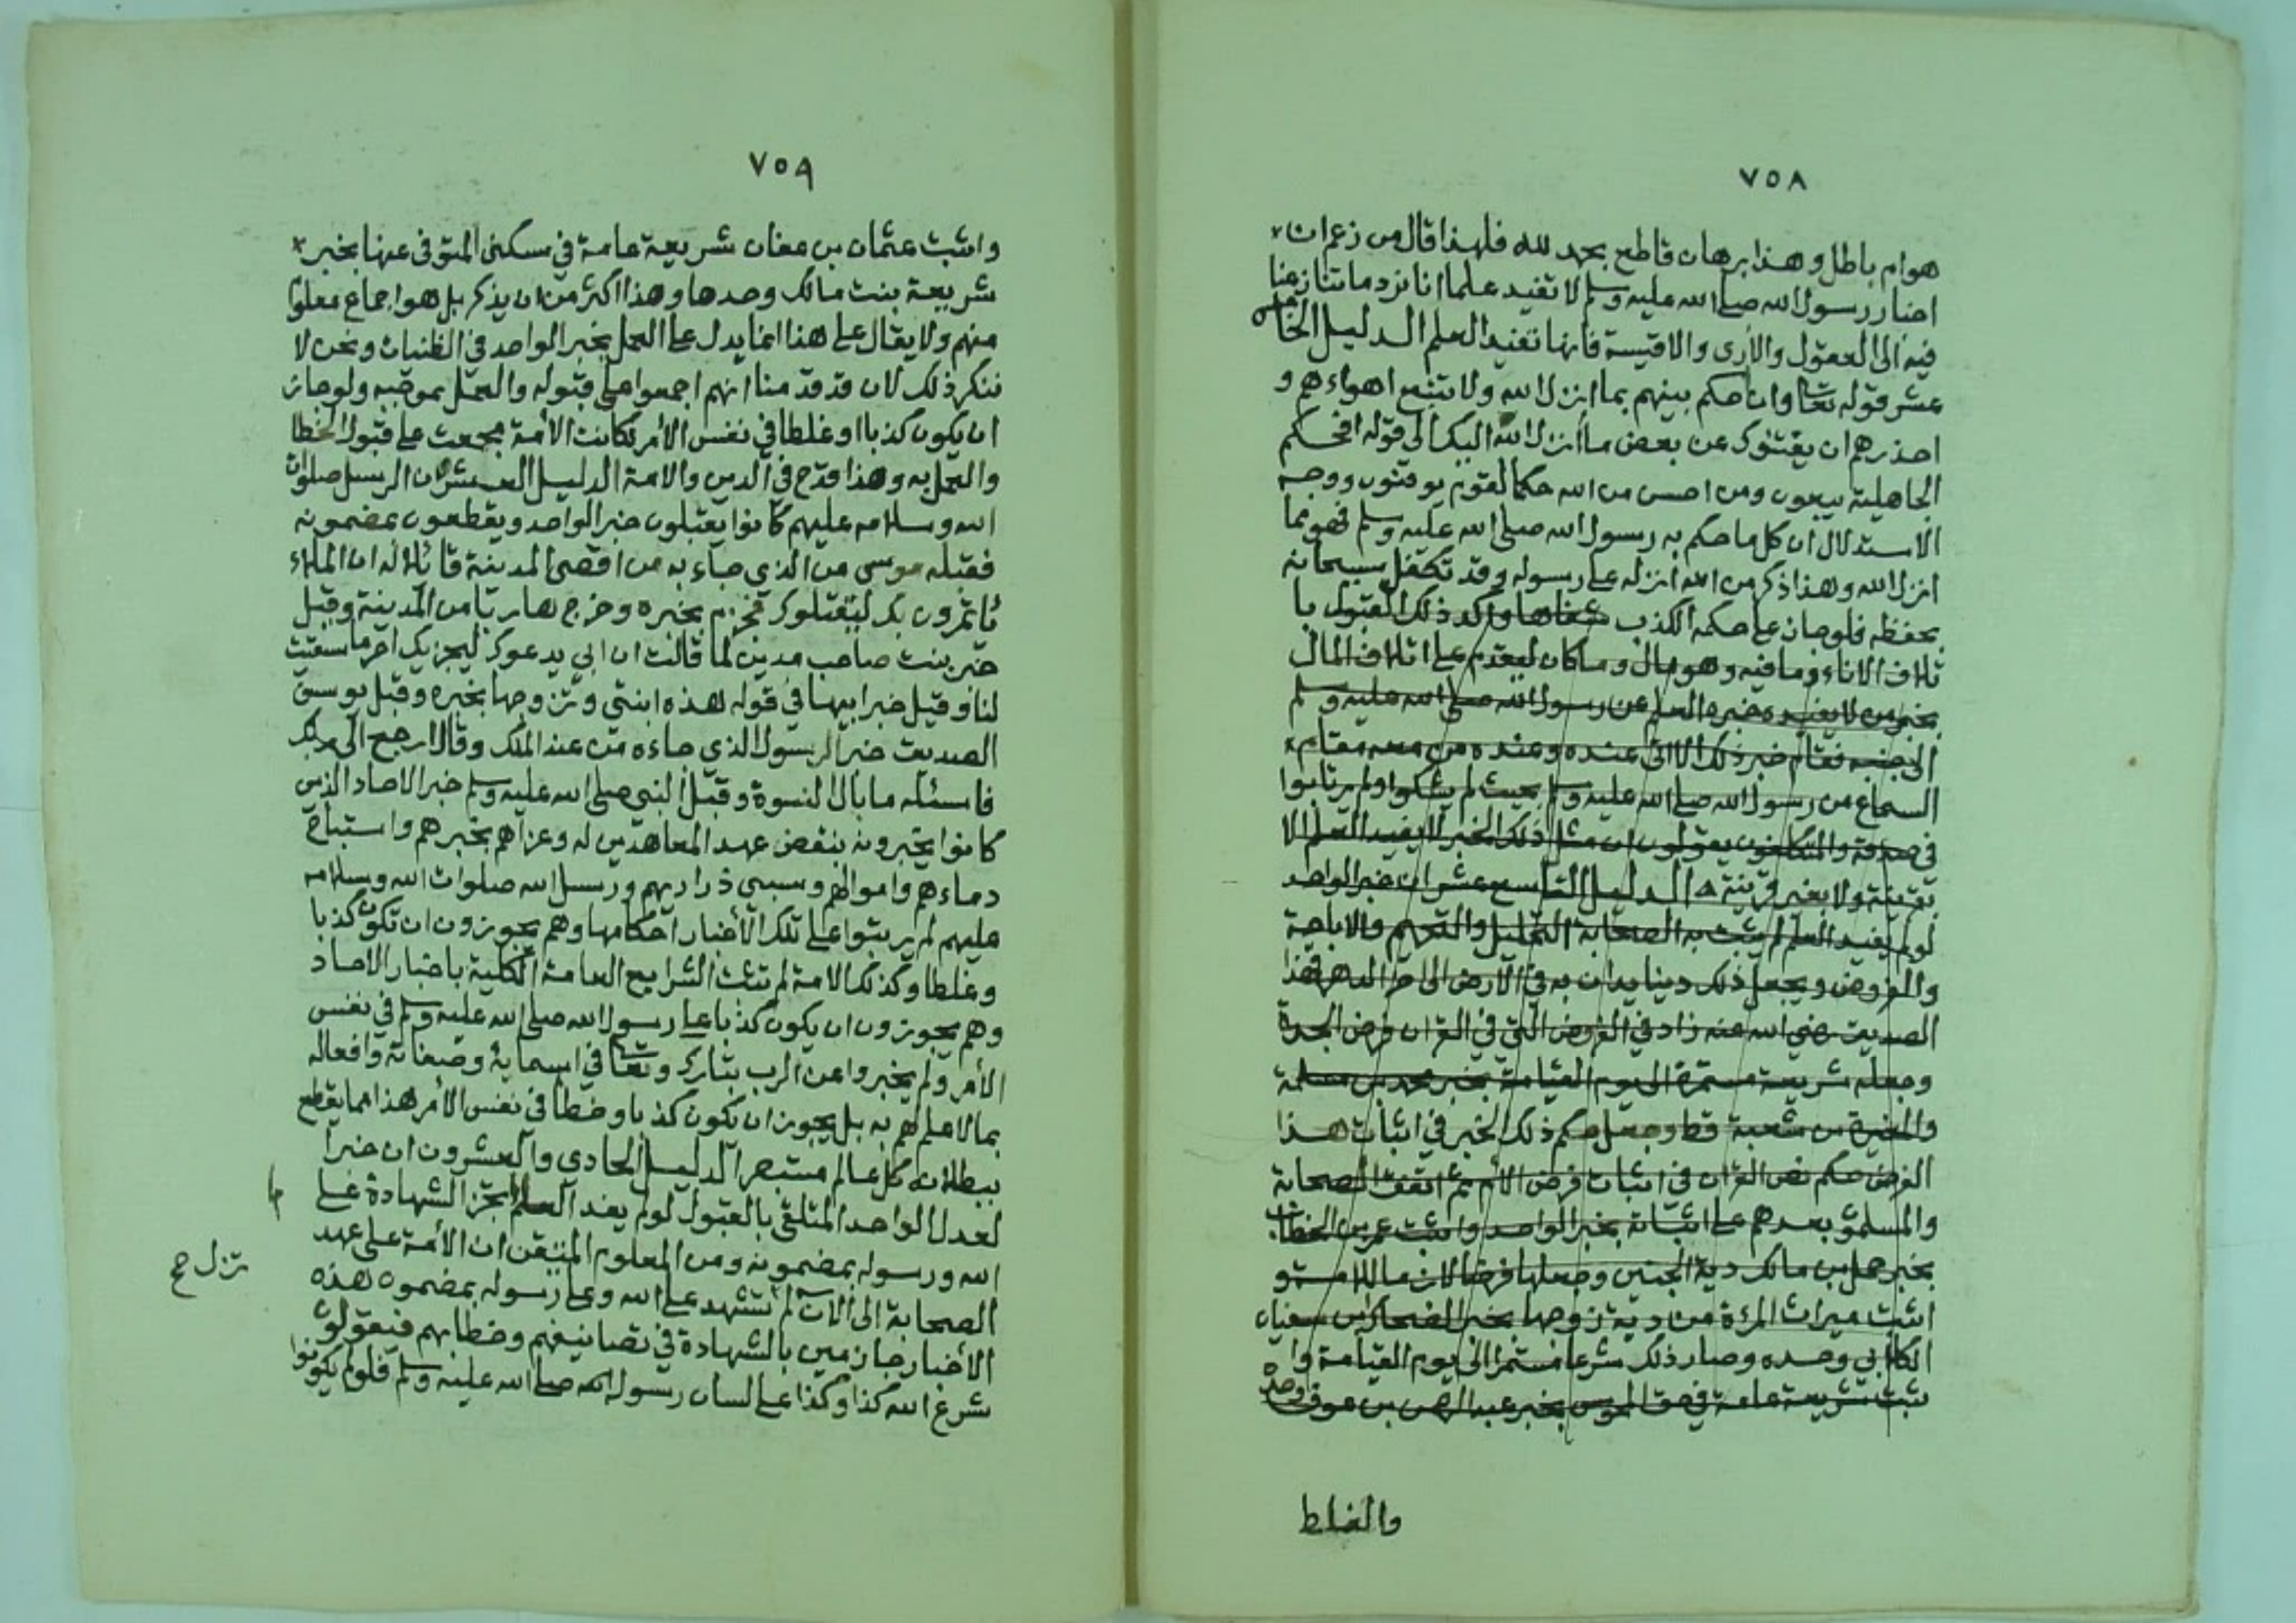 ٧٥٨
هوام باطل وهذا برهان قاطع بحمد لله فلهذا قال من زعم ان
اخبار رسول الله صلى الله عليه وسلم لا تفيد علما انا نرد ما تنازعنا
فيه الى العقول والأرى والاقيسة فانها تفيد العلم الدليل الخامس
عشر قوله تعالى وان احكم بينهم بما انزل الله ولا تتبع اهواءهم و
احذرهم ان يفتنوك عن بعض ما أنزل الله اليك الى قوله افحكم
الجاهلية يبغون ومن احسن من الله حكما لقوم يوقنون ووجه
الاستدلال ان كل ما حكم به رسول الله صلى الله عليه وسلم فهو مما
انزل الله وهذا ذكر من الله انزله على رسوله وقد تكفل سبحانه
بحفظه فلو جاز على حكمه الكذب شفاها واكد ذلك القبول با
تلاف الاناء وما فيه وهو مال وما كان ليقدم على اتلاف المال
بخبر من لا يفيده خبره العلم عن رسول الله صلى الله عليه وسلم
الى جنبه فقام خبر ذلك الاتى عنده وعنده من معه مقام
السماع من رسول الله صلى الله عليه وسلم بحيث لم يشكوا ولم يرتابوا
في صدقه والمتكلفون يقولون ان مثل ذلك الخبر لا يفيد العلم لا
بقرينة ولا بغير قرينة الدليل التاسع عشر ان خبر الواحد
لو لم يفيد العلم لم يثبت به الصحابة التحليل والتحريم والاباحة
والفروض ويجعل ذلك دينا يدان به في الارض الى اخر الدهر فهذا
الصديق رضي الله عنه زاد في الفروض التي في القران فرض الجدة
وجعله شريعة مستمرة الى يوم القيامة بخبر محمد بن مسلمة
والمغيرة بن شعبة فقط وجعل حكم ذلك الخبر في اثبات هذا
الفرض حكم نص القران في اثبات فرض الأم ثم اتفق الصحابة
والمسلمو بعدهم على اثباته بخبر الواحد واثبت عمر بن الخطاب
بخبر حمل بن مالك دية الجنين وجعلها فرضا لازما للامة و
اثبت ميراث المرءة من دية زوجها بخبر الضحاك بن سفيان
الكلابي وحده وصار ذلك شرعا مستمرا الى يوم القيامة وا
ثبت شريعة عامة في حق المجوس بخبر عبد الرحمن بن عوف وحده
والغلط
٧٥٩
واثبت عثمان بن عفان شريعة عامة في سكنى المتوفى عنها بخبر
شريعة بنت مالك وحدها وهذا اكثر من ان يذكر بل هو اجماع معلوم
منهم ولا يقال على هذا انما يدل على العمل بخبر الواحد في الظنيات ونحن لا
ننكر ذلك لان قد قدمنا انهم اجمعوا على قبوله والعمل بموجبه ولو جاز
ان يكون كذبا او غلطا في نفس الأمر لكانت الأمة مجمعت على قبول الخطا
والعمل به وهذا قدح في الدين والامة الدليل العشرون ان الرسل صلوات
الله وسلامه عليهم كانوا يقبلون خبر الواحد ويقطعون بمضمونه
فقبله موسى من الذي جاء به من اقصى المدينة قائلا له ان الملاء
يأتمرون بك ليقتلوك فجزم بخبره وخرج هاربا من المدينة وقبل
خبر بنت صاحب مدين لما قالت ان ابي يدعوك ليجزيك اجر ما سقيت
لنا وقبل خبر ابيها في قوله هذه ابنتي وتزوجها بخبره وقبل يوسف
الصديق خبر الرسول الذي جاءه من عند الملك وقال ارجع الى ربك
فاسئله ما بال النسوة وقبل النبي صلى الله عليه وسلم خبر الاحاد الذين
كانوا يخبرونه بنقض عهد المعاهدين له وغزاهم بخبرهم واستباح
دماءهم واموالهم وسبى ذراريهم ورسل الله صلوات الله وسلامه
عليهم لم يرتبوا على تلك الأخبار احكامها وهم يجوزون ان تكون كذبا
وغلطا وكذلك الامة لم تثبت الشرايع العامة الكلية باخبار الاحاد
وهم يجوزون ان يكون كذبا على رسول الله صلى الله عليه وسلم في نفس
الأمر ولم يخبروا عن الرب تبارك وتعالى في اسمايه وصفاته وافعاله
بما لا علم لهم به بل يجوز ان تكون كذبا وخطا في نفس الأمر هذا مما يقطع
ببطلانه كل عالم مستبصر الدليل الحادي والعشرون ان خبرا
لعدل الواحد المتلقى بالقبول لو لم يفد العلم لم تجز الشهادة على
الله ورسوله بمضمونه ومن المعلوم المتيقن ان الأمة على عهد
الصحابة الى الآن لم تشهد على الله وعلى رسوله بمضمون هذه
الأخبار جازمين بالشهادة في تصانيفهم وخطابهم فيقولون
شرع الله كذا وكذا على لسان رسوله الله صلى الله عليه وسلم فلو لم يكونوا
تزل صح